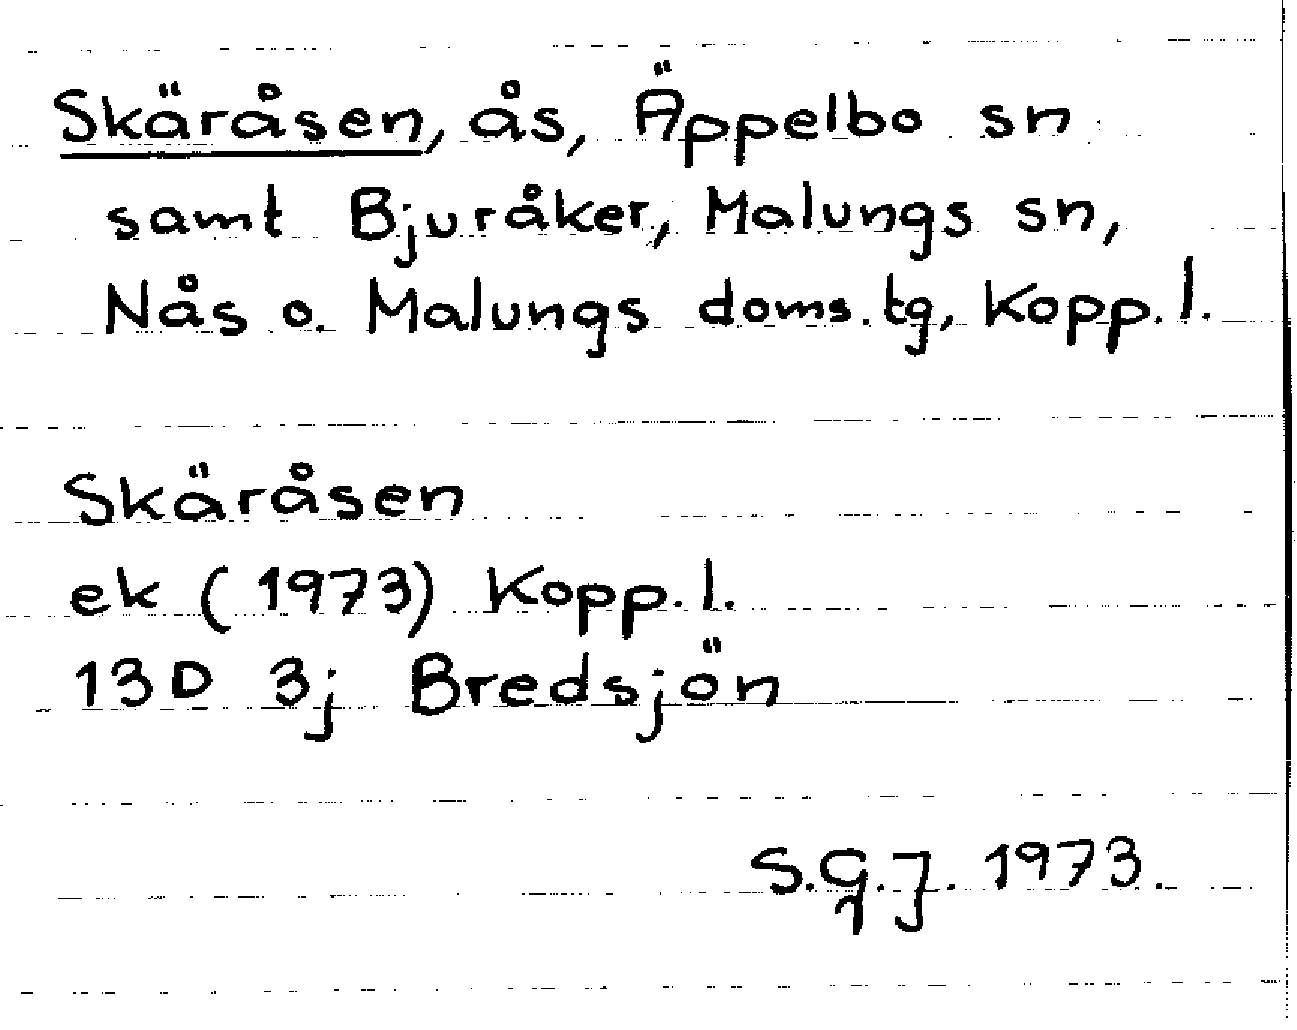 Skäråsen, ås, Äppelbo sn
samt Bjuråker, Malungs sn,
Nås o. Malungs doms.tg, Kopp.l.
Skäråsen
ek (1973) Kopp.l.
13D 3j Bredsjön
S.G.J. 1973.